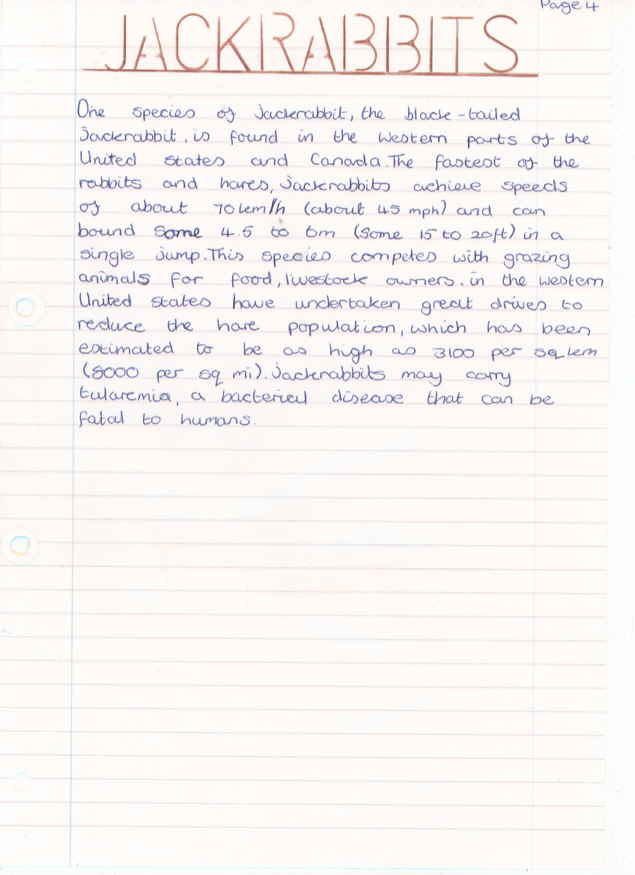 Page 4
JACKRABBITS
One species of Jackrabbit, the black-tailed
Jackrabbit, is found in the western parts of the
United states and Canada. The fastest of the
rabbits and hares, jackrabbits achieve speeds
of about 70 km/h (about 45 mph) and can
bound some 4.5 to 6m (some 15 to 20ft) in a
single jump. This species competes with grazing
animals for food, livestock owners. in the western
United states have undertaken great drives to
reduce the hare population, which has been
estimated to be as high as 3100 per sq km
(8000 per sq mi). Jackrabbits may carry
tularemia, a bacterial disease that can be
fatal to humans.